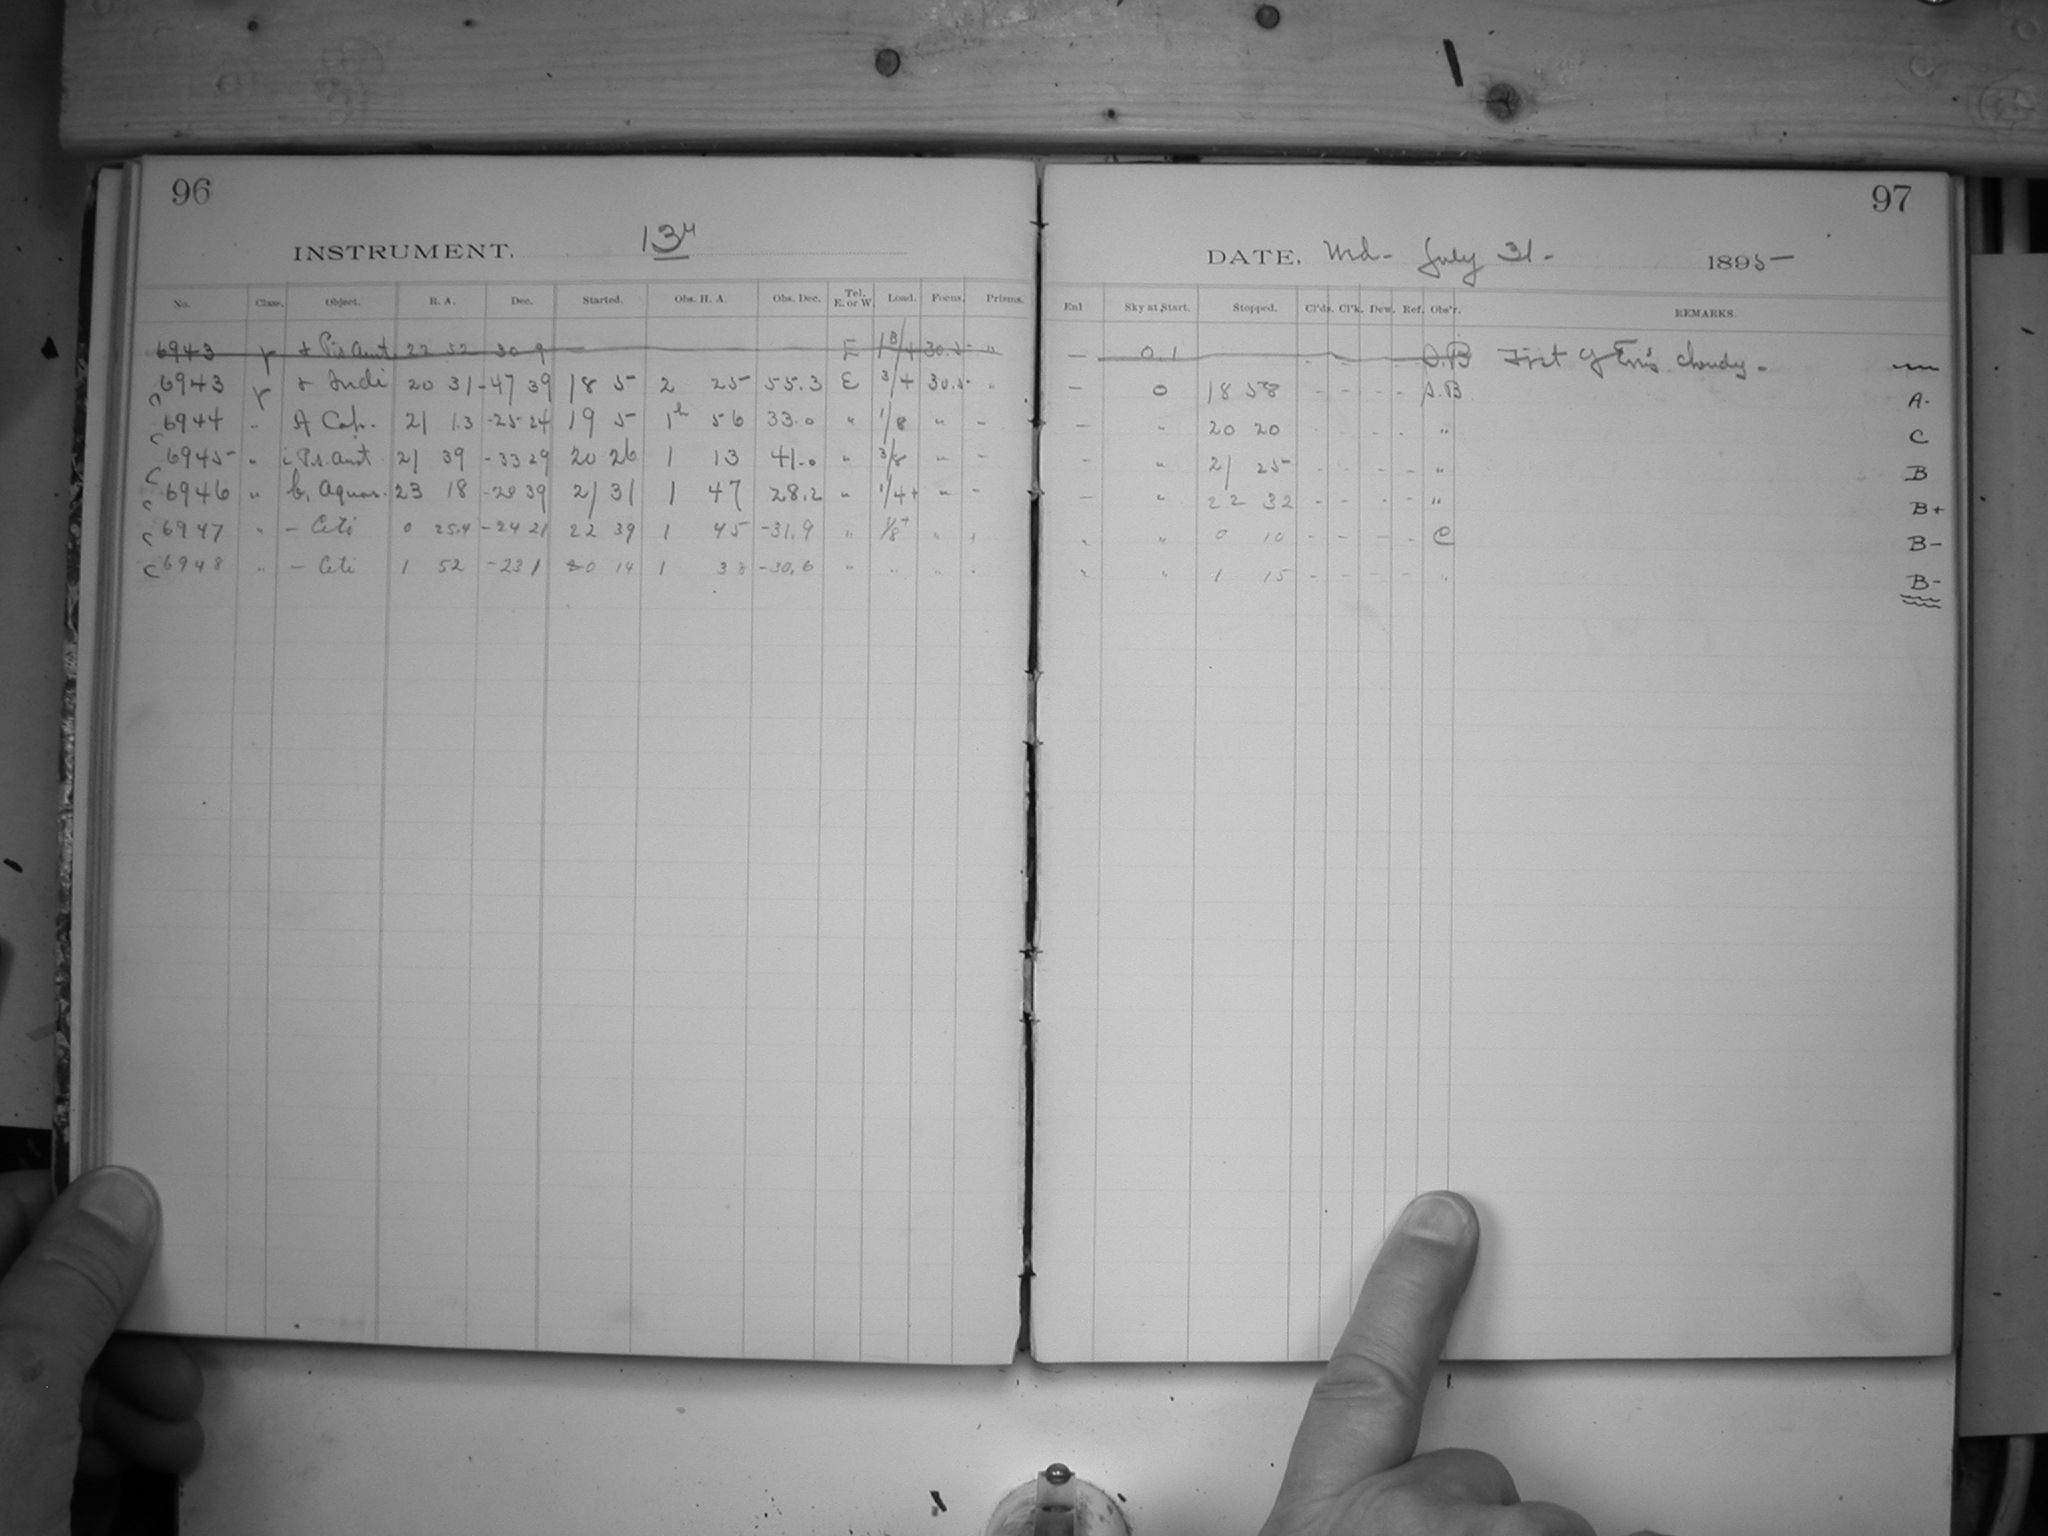 96
INSTRUMENT. 13"
No. Class. Object. R. A. Dec. Started. Obs. H. A. Obs. Dec. Tel. E. or W. Load. Focus. Prisms.
6943 γ α Pis Aust. 22 52 30 9 E 30.5 "
6943 γ α Indi 20 31 -47 39 18 5 2 25 55.3 E 3/4 30.5 "
6944 " A Cap. 21 1.3 -25 24 19 5 1h 56 33.0 " 1/8 " -
6945 " i Ps. Aust. 21 39 -33 29 20 26 1 13 41.0 " 3/8 " -
6946 " b, Aquar. 23 18 -20 39 21 31 1 47 28.2 " 1/4+ " -
6947 " - Ceti 0 25.4 -24 21 22 39 1 45 -31.9 " 1/8+ "
6948 " - Ceti 1 52 -23 1 0 14 1 38 -30.6 " " "
97
DATE, Wd. July 31. 1895
Enl Sky at Start. Stopped. Cl'ds. Cl'k. Dew. Ref. Obs'r. REMARKS.
— 0.1 S.B cloudy.
— 0 18 58 - - - - S.B A-
— " 20 20 - - - - " C
- " 21 25 - - - - " B
— " 22 32 - - - - " B+
" " 0 10 - - - - C B-
" " 1 15 - - - - " B-